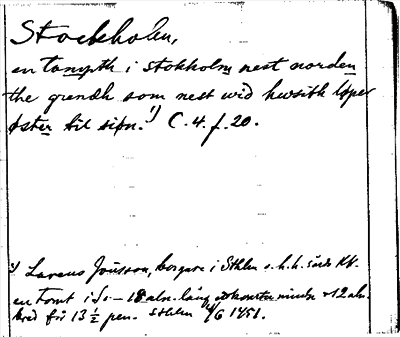 Stockholm,
en tompth i stokholm nest norden
the grendh som nest wid hwsith løper
øster til siøn. 1) C. 4. f. 20.
1) Larens Jönsson, borgare i Sthlm o. h. h. sålds Kk.
en tomt i S. – 18 aln. lång mindre + 12 aln.
bred för 13 1/2 pen. Sthlm 1/6 1451.